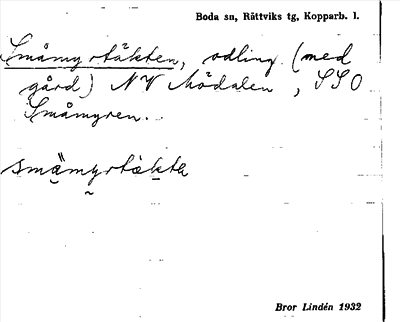 Boda sn, Rättviks tg, Kopparb. l.
Småmyrtäkten, odling (med
gård) NV Mödalen, SSO
Småmyren.
Bror Lindén 1932